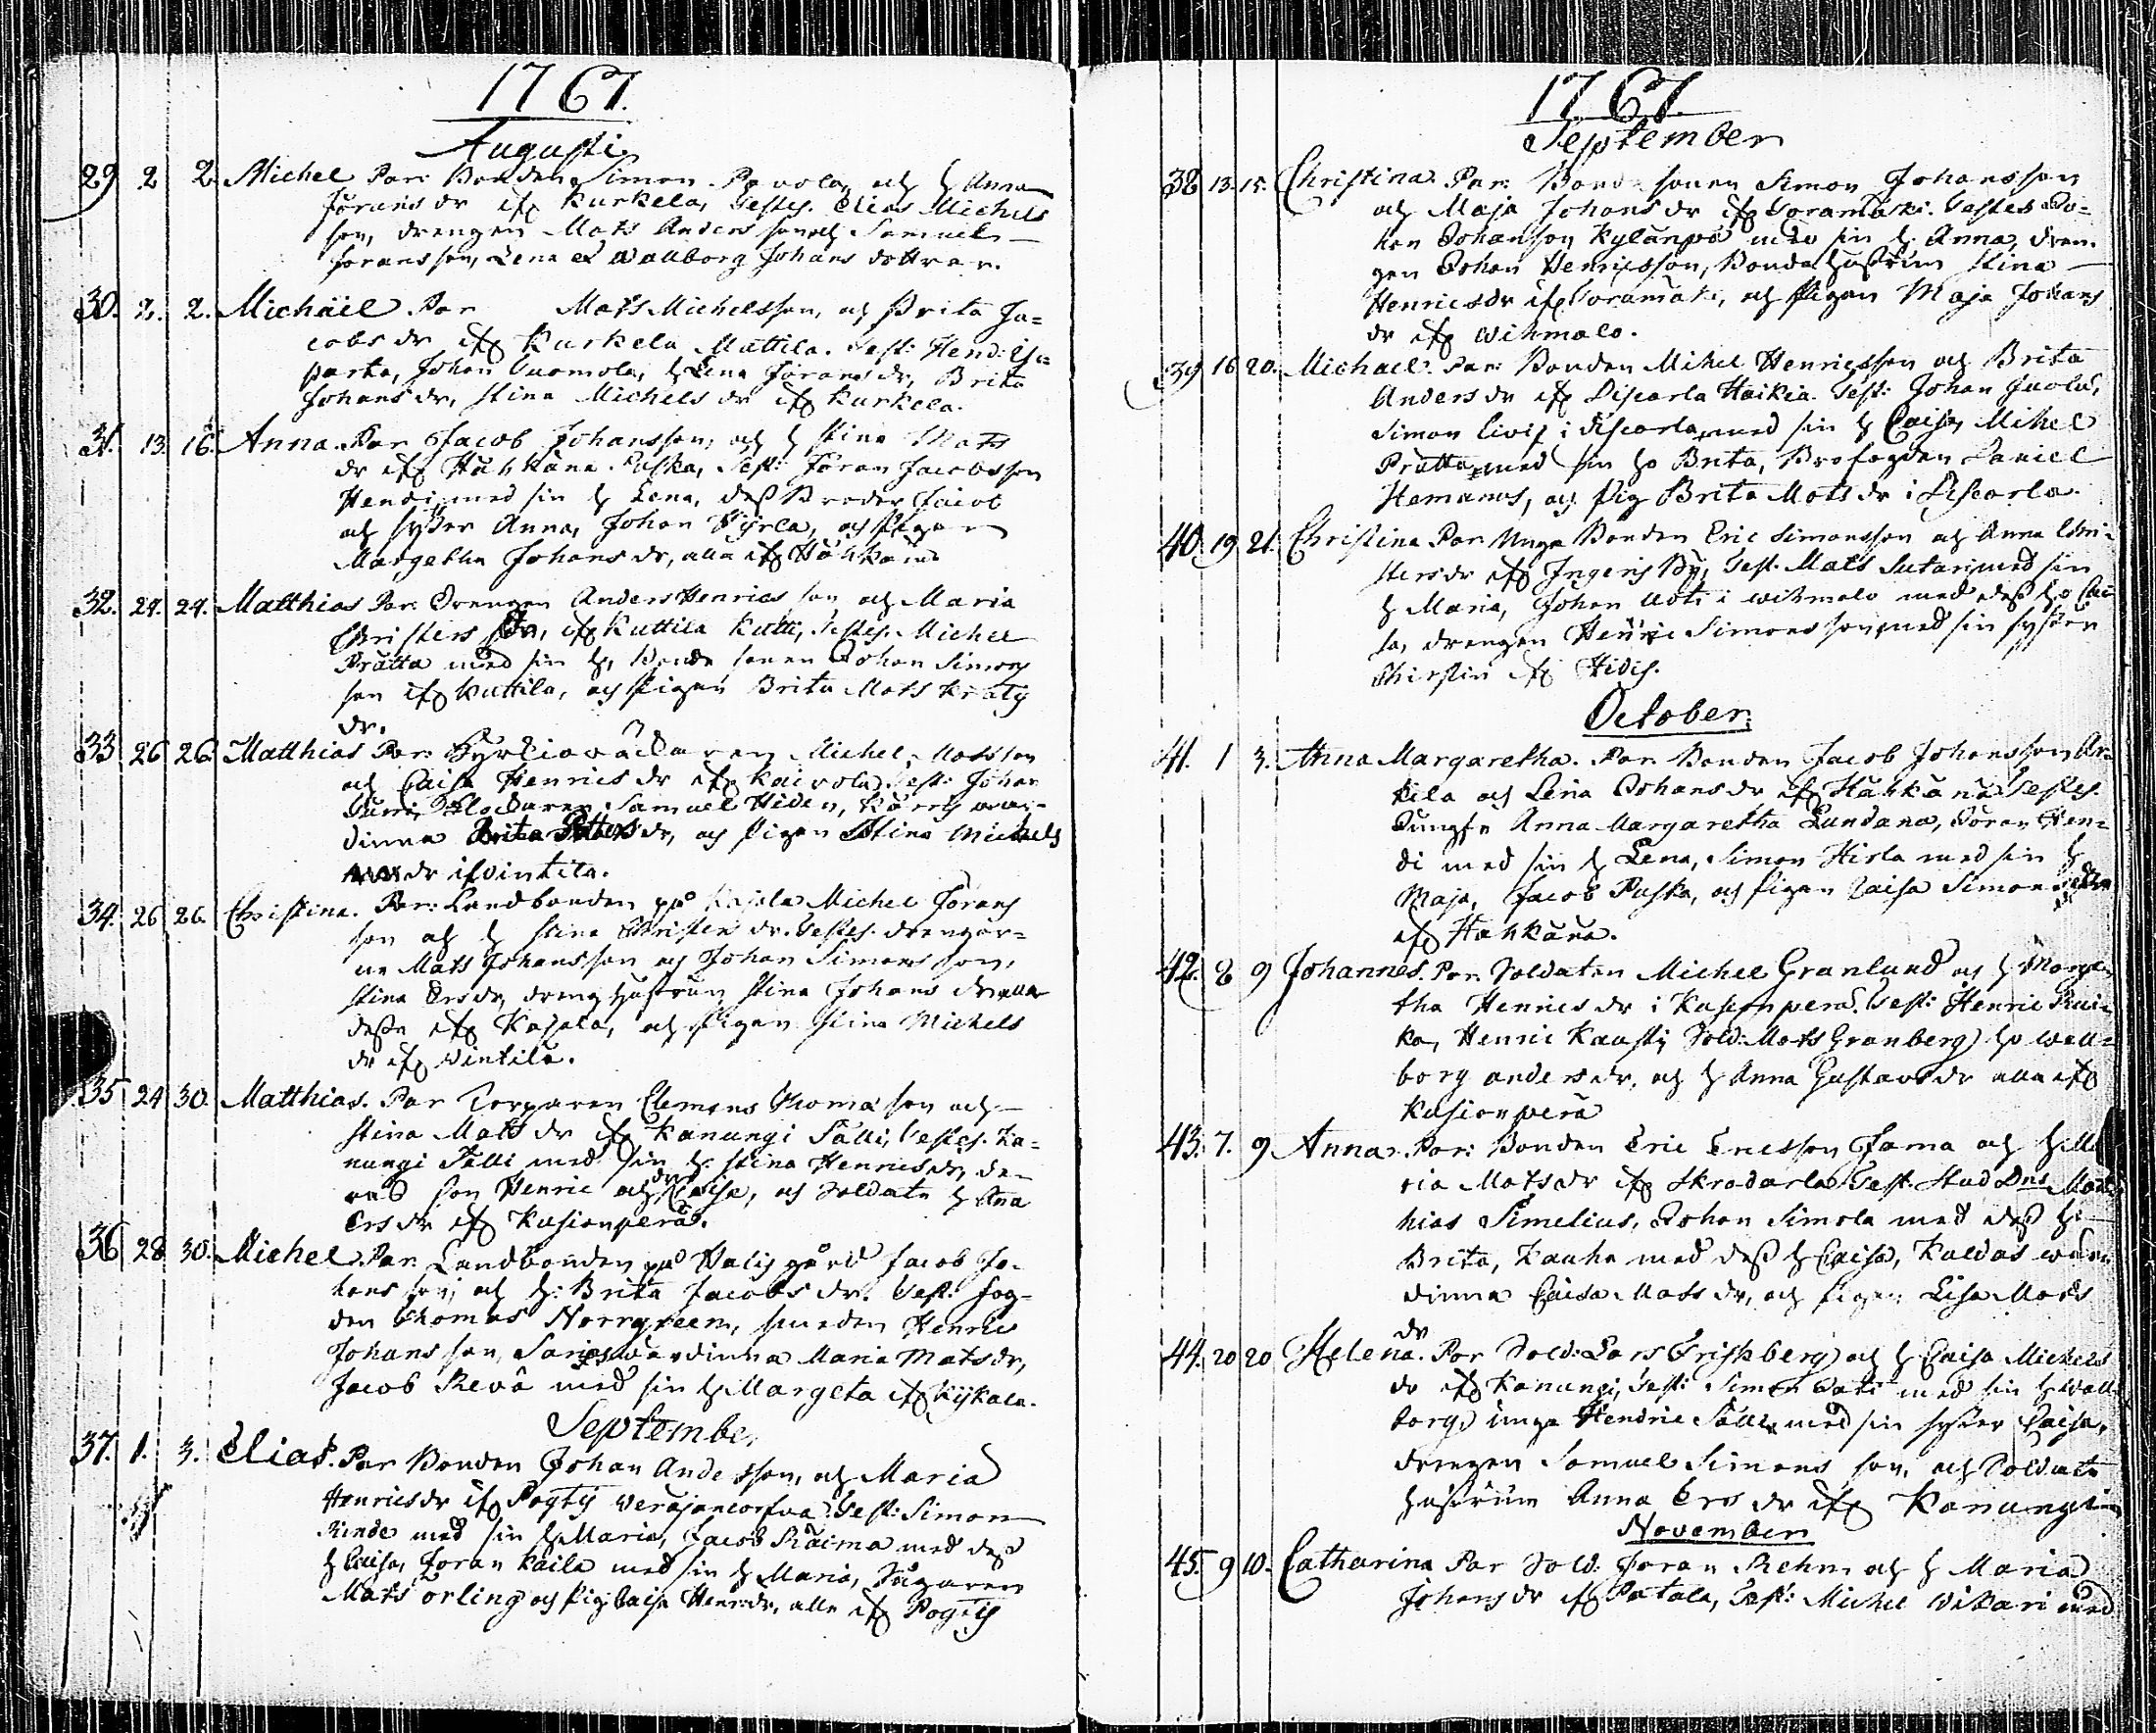 1767.
Augusti.
29 2 2 Michel Par: Bonden Simon Pavola och h Anna
Jörans dr if Kurkela, Testes. Elias Michels
son, drengen Mats Anders son och Samuel
Joransson, Lena et Wallborg Johans dottrar.
30. 2. 2. Michäel Par Mats Michelsson, och Brita Ja=
cobs dr if Kurkela Mattila. Test: Hend:
parta, Johan Tuomola, h Lena Jörans dr, Brita
Johans dr, Stina Michels dr if Kurkela.
31. 13. 16. Anna Par Jacob Johansson, och h Stina Mats
dr if Hähkänä Puska, Test: Jöran Jacobsson
Hendi med sin h Lena, dess Broder Jacob
och syster Anna, Johan och Pigan
Margetha Johans dr, alla if Hähkänä
32. 24. 24. Matthias Par: Drengen Anders Henrics son och Maria
Christers dr, if Kuttila Kutti, Testes. Michel
Prätta med sin h, Bonde sonen Johan Simons
son if Kuttila, och Pigan Brita Mats
dr.
33 26 26 Matthias Par: Kyrkiowäcktaren Michel Matsson
och Caisa Henrics dr if Kaivola. Test: Johan
Klockaren Samuel Hiden,
dinna Brita dr, och Pigan Stina Michels
dr if vintila.
34. 26 26. Christina. Par: Landbonden på Kajala Michel Jörans
son och h Stina Christers dr. Testes. drengar=
ne Mats Johansson och Johan Simons son,
Stina Ersdr, dreng hustrun Stina Johans dr alla
desse if Kajala, och Pigan Stina Michels
dr if vintila.
35 24 30. Matthias. Par Torparen Clemens Thomæ son och
Stina Mats dr if Kanungi Sälli, Testes. Ka=
nungi Sälli med sin h: Stina Henricsdr, de=
ras son Henric och dr Caisa, och Soldatn h Stina
Ers dr if Kusionperä.
36 28 30. Michel Par: Landbonden på Halis gård Jacob Jo=
hans son, och h: Brita Jacobs dr. Test: Fog=
den Thomas Norrgreen, smeden Henric
Johans son, wärdinna Maria Matsdr,
Jacob Revä med sin h Margeta if Kijkala.
September
37. 1. 3. Elias. Par Bonden Johan Andersson, och Maria
Henricsdr if Pogtij Test: Simon
Rinde med sin h Maria, Jacob Räima med dess
h Caisa, Joran Kaila med sin h Maria,
Mats Örling och Pig Caisa Henr: dr, alla if Pogtij
1767.
September
38 13. 15. Christina. Par: Bonde sonen Simon Johansson
och Maja Johans dr if Joramäki. Testes Jo=
han Johansson Kylänpä med sin h. Anna, dren
gen Johan Henricsson, Bonde hustrun Stina
Henricsdr if Joramäki, och Pigan Maja Johans
dr if Wihmalo.
39 16 20. Michael. Par: Bonden Mihel Henricsson och Brita
Anders dr if Discarla Heikia. Test: Johan Juola,
Simon i Discarla, med sin h Caisa, Mihel
Prätta, med sin ho Brita, Brofogden Daniel
Hemanus, och Pig Brita Mats dr i Discarla.
40. 19 21. Christina Par Unge Bonden Eric Simonsson och Anna Chri=
sters dr if Ingeris By, Test. Mats Sutari med sin
h Maria, Johan Uoti i Wihmalo med dess ho Cai
sa, drengen Henric Simons son, med sin syster
Chirstin if Hidis.
October.
41. 1 3. Anna Margaretha. Par Bonden Jacob Johansson Ar=
kila och Lena Johansdr if Hähkänä Testes.
Jungfr Anna Margaretha Lundana, Jöran Hen=
di med sin h Lena, Simon Hirla med sin h
Maja, Jacob Puska, och Pigan Caisa Simons dr
if Hähkänä.
42. 8 9 Johannes. Par: Soldaten Michel Granlund och h Marga
tha Henrics dr i Kusionperä. Test: Henric
ka, Henric Kausti, Sold: Mats Granberg, ho Wall=
borg andersdr, och h Anna Gustavs dr alla if
Kusionperä
43. 7. 9 Anna. Par: Bonden Eric Ericsson Jama och h: Ma
ria Matsdr if Skradarla. Test. Stud Dns Mat
hias Simelius, Johan Simola med dess h:
Brita, Kauha med dess h Caisa, Kaldas wär
dinna Caisa Mats dr, och Pigan Lisa Mats
dr
44. 20 20 Helena. Par Sold: Lars Frishberg och h Caisa Michels
dr if Kanungi, Test: Simon med sin h Wall
borg, unga Hendric Sälli med sin syster Caisa,
drengen Samuel Simons son, och Soldate
hustrun Anna Ers dr if Kanungi
November
45. 9 10. Catharina Par Sold: Joran Rehn och h Maria
Johans dr if Patala, Test: Michel Wikari med